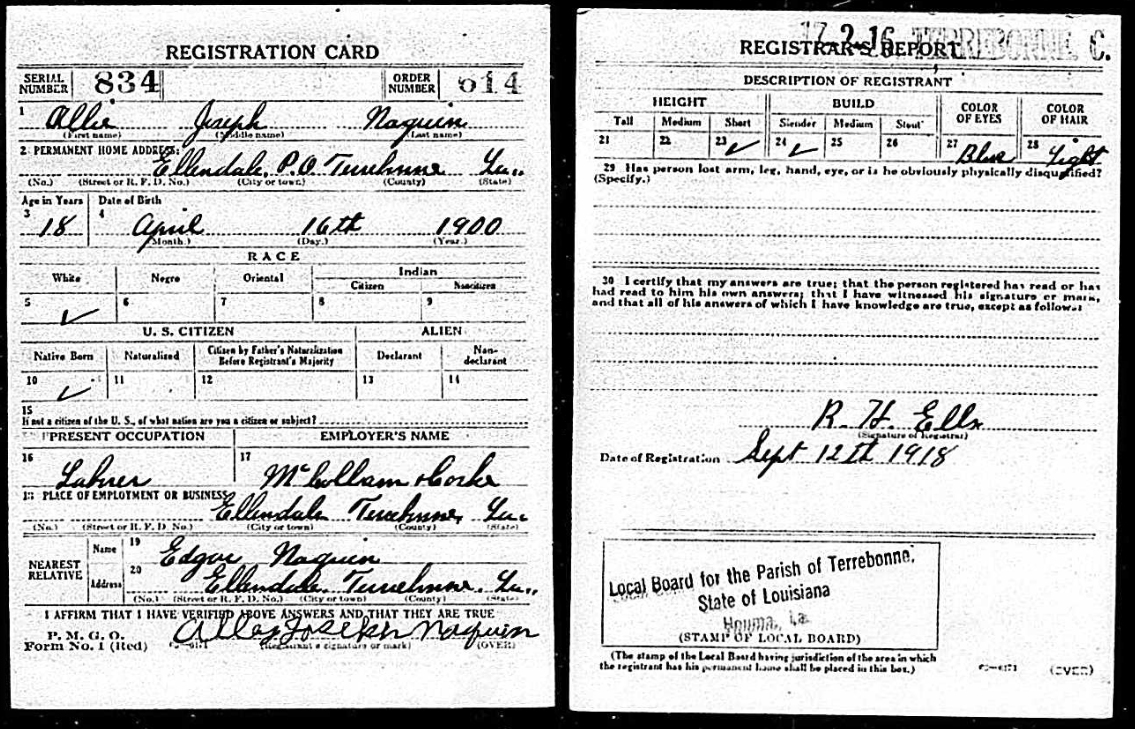 REGISTRATION CARD
SERIAL NUMBER 834 ORDER NUMBER 614
1 Allie Joseph Naquin
(First name) (Middle name) (Last name)
2 PERMANENT HOME ADDRESS:
Ellendale, P.O. Terrebonne La.
(No.) (Street or R. F. D. No.) (City or town) (County) (State)
Age in Years Date of Birth
3 18 4 April 16th 1900
(Month.) (Day.) (Year.)
RACE
White Negro Oriental Indian
Citizen Noncitizen
5 ✓ 6 7 8 9
U. S. CITIZEN ALIEN
Native Born Naturalized Citizen by Father's Naturalization Before Registrant's Majority Declarant Non-declarant
10 ✓ 11 12 13 14
15
If not a citizen of the U. S., of what nation are you a citizen or subject?
PRESENT OCCUPATION EMPLOYER'S NAME
16 Labrer 17 McCollam & Cocke
18 PLACE OF EMPLOYMENT OR BUSINESS:
Ellendale Terrebonne, La.
(No.) (Street or R. F. D. No.) (City or town) (County) (State)
NEAREST RELATIVE Name 19 Edgar Naquin
Address 20 Ellendale Terrebonne La.
(No.) (Street or R. F. D. No.) (City or town) (County) (State)
I AFFIRM THAT I HAVE VERIFIED ABOVE ANSWERS AND THAT THEY ARE TRUE
P. M. G. O.
Form No. 1 (Red) Joseph Naquin
(Registrant's signature or mark) (OVER)
17-2-16 TERREBONNE C.
REGISTRAR'S REPORT
DESCRIPTION OF REGISTRANT
HEIGHT BUILD COLOR OF EYES COLOR OF HAIR
Tall Medium Short Slender Medium Stout
21 22 23 ✓ 24 ✓ 25 26 27 Blue 28 Light
29 Has person lost arm, leg, hand, eye, or is he obviously physically disqualified?
(Specify.)
30 I certify that my answers are true; that the person registered has read or has
had read to him his own answers; that I have witnessed his signature or mark,
and that all of his answers of which I have knowledge are true, except as follows:
R. H. Ells
(Signature of Registrar)
Date of Registration Sept 12th 1918
Local Board for the Parish of Terrebonne,
State of Louisiana
Houma, La.
(STAMP OF LOCAL BOARD)
(The stamp of the Local Board having jurisdiction of the area in which
the registrant has his permanent home shall be placed in this box.)
(OVER)